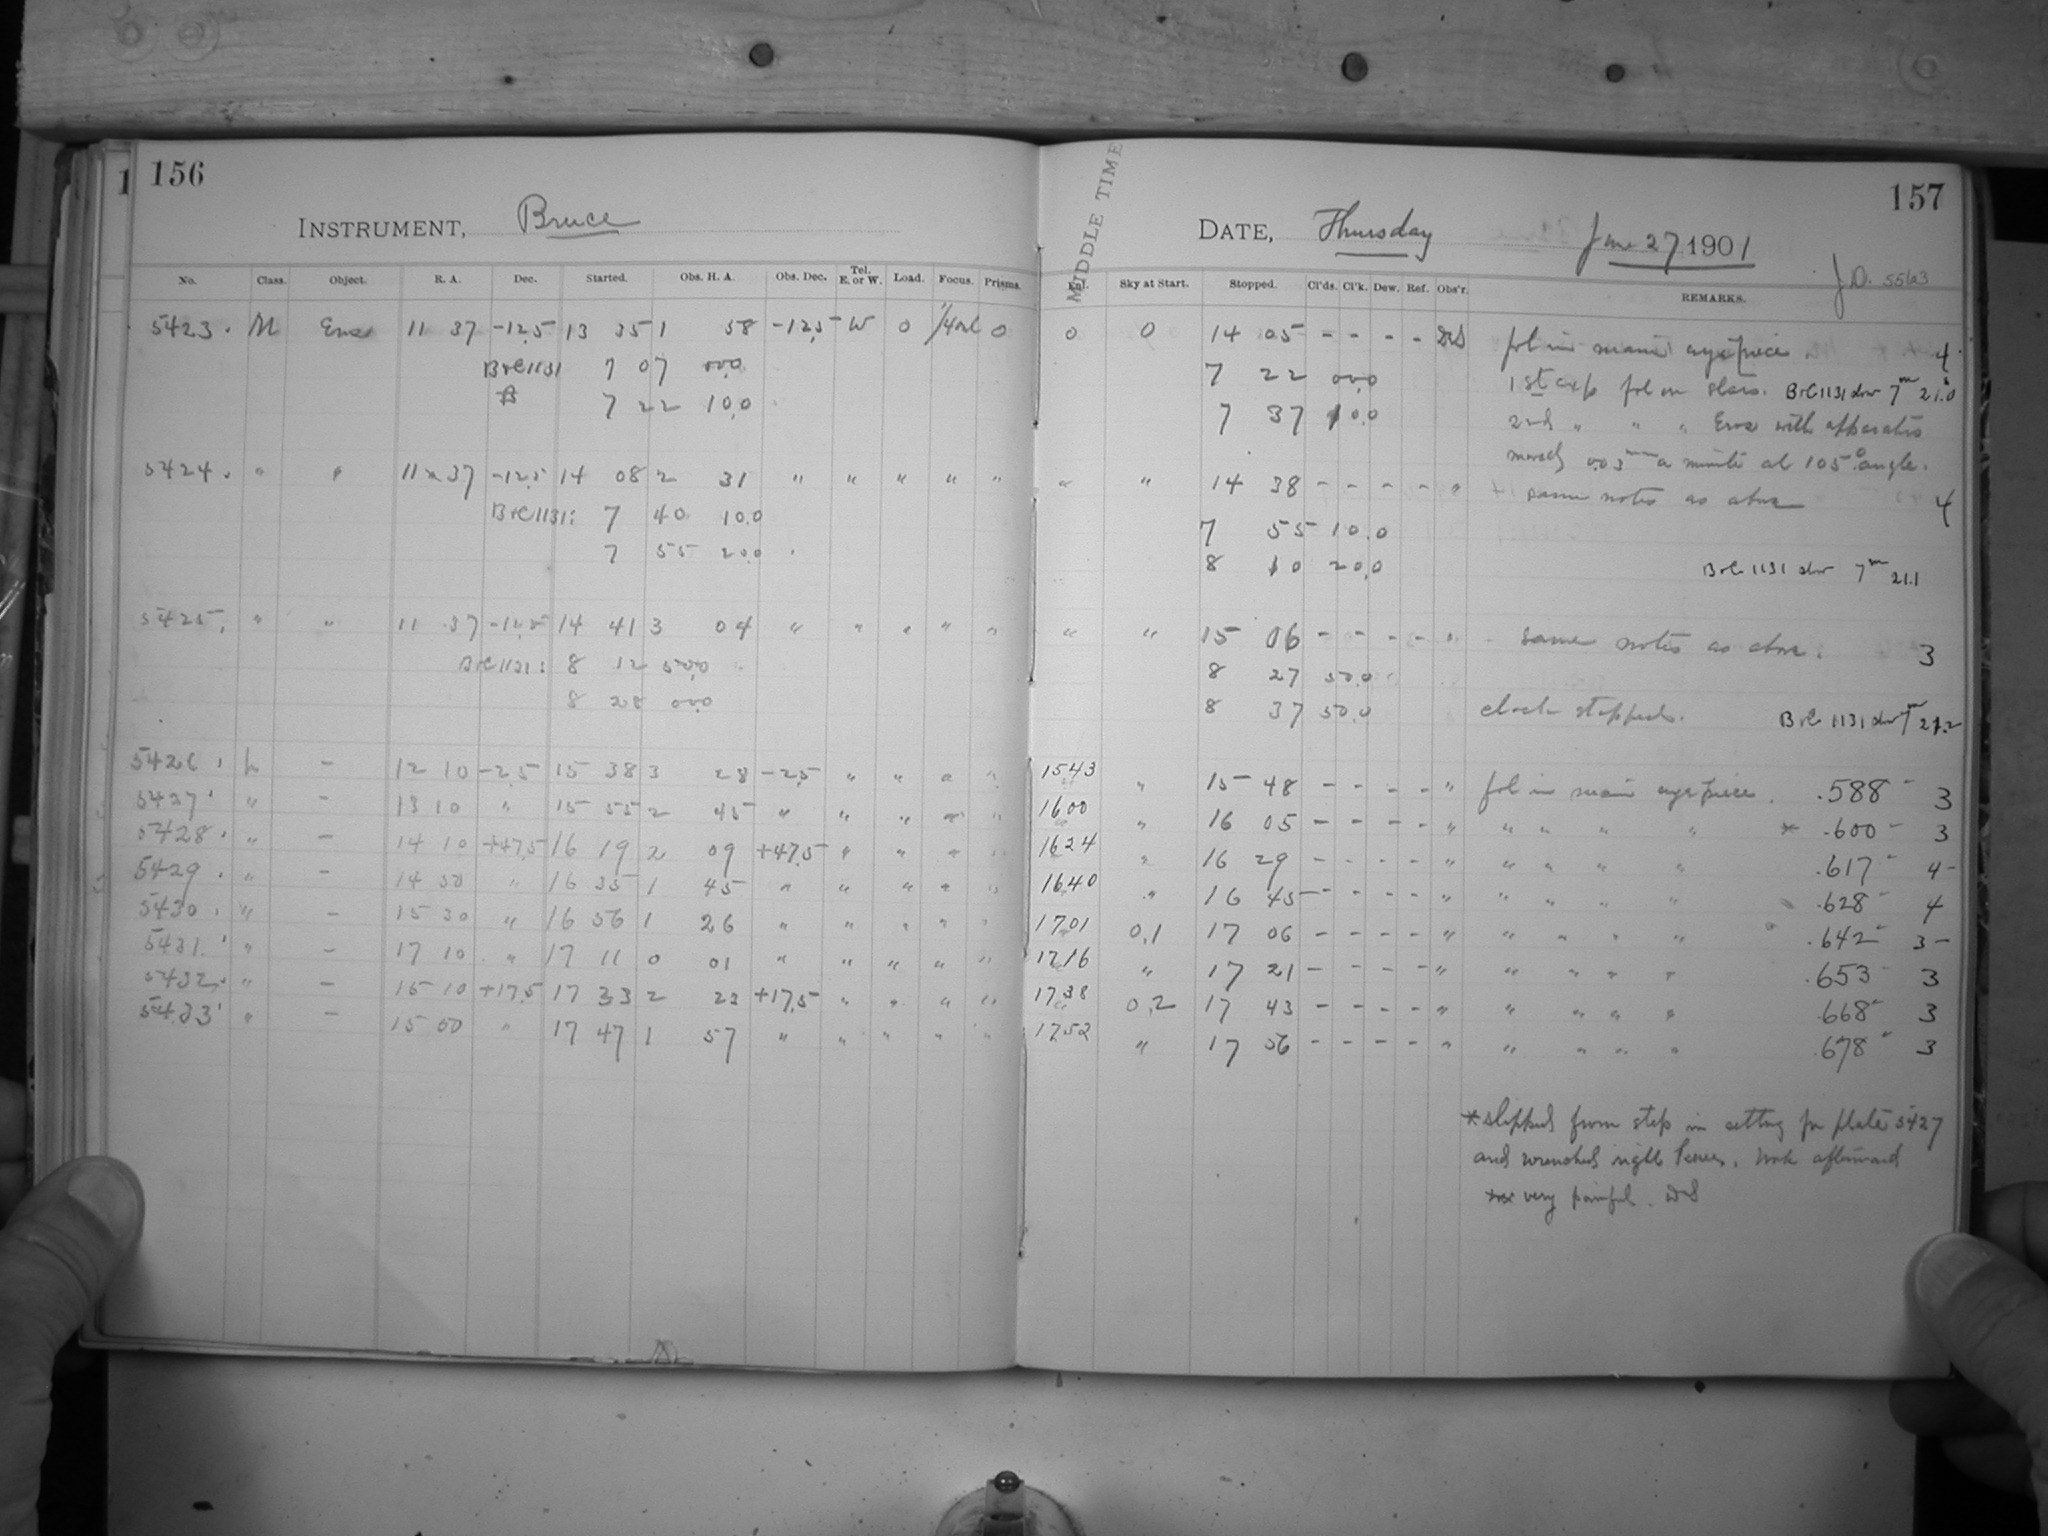 1 156
INSTRUMENT, Bruce
No. Class. Object. R. A. Dec. Started. Obs. H. A. Obs. Dec. Tel. E. or W. Load. Focus. Prisms.
5423. M Eros 11 37 -12.5 13 35 1 58 -12.5 W 0 0
B+C 1131 7 07 00.0
7 22 10.0
5424. " " 11 37 -12.5 14 08 2 31 " " " " "
B+C 1131: 7 40 10.0
7 55 20.0
5425. " " 11 37 -12.5 14 41 3 04 " " " " "
B+C 1131: 8 12 50.0
8 28 00.0
5426. L - 12 10 -2.5 15 38 3 28 -2.5 " " " "
5427 " - 13 10 " 15 55 2 45 " " " " "
5428. " - 14 10 +47.5 16 19 2 09 +47.5 " " " "
5429. " - 14 50 " 16 35 1 45 " " " " "
5430. " - 15 30 " 16 56 1 26 " " " " "
5431. " - 17 10 " 17 11 0 01 " " " " "
5432. " - 15 10 +17.5 17 33 2 23 +17.5 " " " "
5433 " - 15 50 " 17 47 1 57 " " " " "
157
MIDDLE TIME
DATE, Thursday June 27, 1901
J.D. 5563
Sky at Start. Stopped. Cl'ds. Cl'k. Dew. Ref. Obs'r. REMARKS.
0 0 14 05 - - - - DS fol in main eyepiece. 4
7 22 00.0 1st exp fol on stars. B+C 1131 slow 7m 21.0s
7 37 10.0 2nd " " " Eros with apparatus
moved 0.03mm a minute at 105° angle.
" " 14 38 - - - - " same notes as above 4
7 55 10.0
8 10 20.0 B+C 1131 slow 7m 21.1
" " 15 06 - - - - " same notes as above. 3
8 27 50.0
8 37 50.0 clock stopped. B+C 1131 slow 7m 21.2
1543 " 15 48 - - - - " fol in main eyepiece. .588 3
1600 " 16 05 - - - - " " " " " * .600 3
1624 " 16 29 - - - - " " " " " .617 4-
1640 " 16 45 - - - - " " " " " .628 4
1701 0.1 17 06 - - - - " " " " " .642 3-
1716 " 17 21 - - - - " " " " " .653 3
1738 0.2 17 43 - - - - " " " " " .668 3
1752 " 17 56 - - - - " " " " " .678 3
*slipped from step in setting for plate 5427
and wrenched right knee. Work afterward
very painful. DS